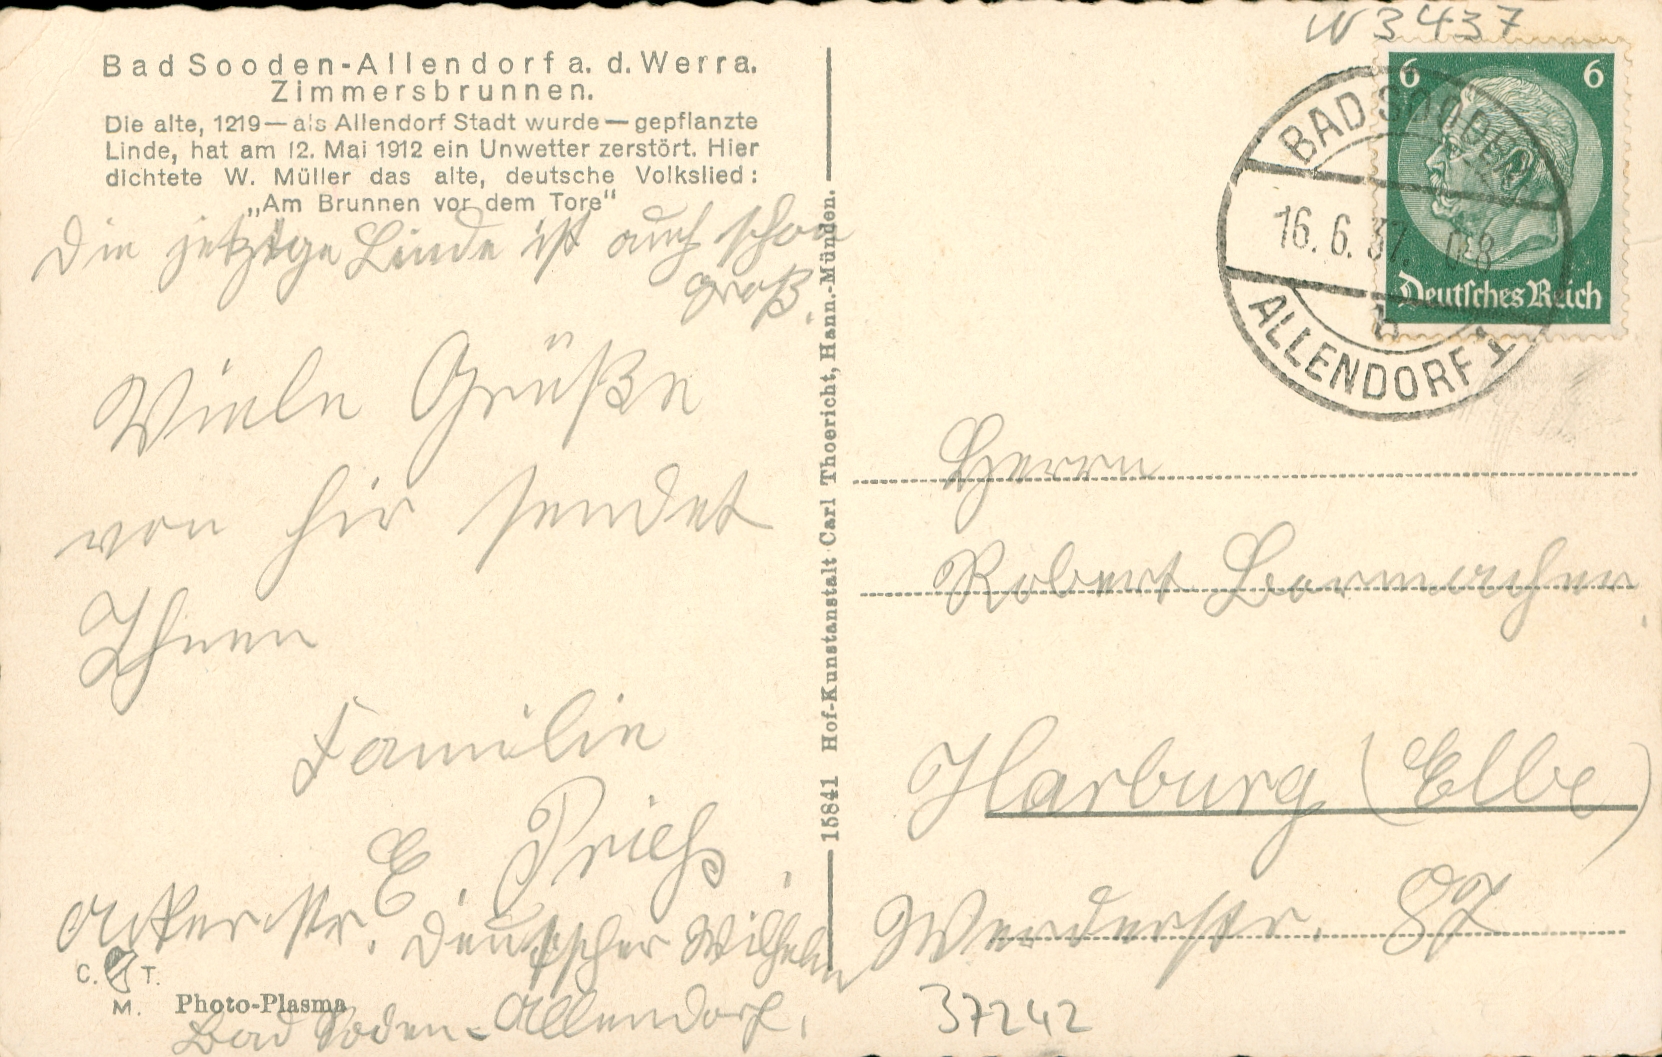 W 3437
Bad Sooden-Allendorf a. d. Werra.
Zimmersbrunnen.
Die alte, 1219—als Allendorf Stadt wurde—gepflanzte
Linde, hat am 12. Mai 1912 ein Unwetter zerstört. Hier
dichtete W. Müller das alte, deutsche Volkslied:
„Am Brunnen vor dem Tore“
Die jetzige Linde ist auch schon
groß.
Viele Grüße
von hir sendet
Ihnen
Familie
E.
Ackerstr. Deutscher Wilhelm
Bad Soden-Allendorf.
C. T.
M.
Photo-Plasma
15841 Hof-Kunstanstalt Carl Thoericht, Hann.-Münden.
6 6
Deutsches Reich
BAD SOODEN
16.6.37. 8
b
ALLENDORF 1
Herrn
Robert Bormacher
Harburg (Elbe)
Werderstr. 87
37242